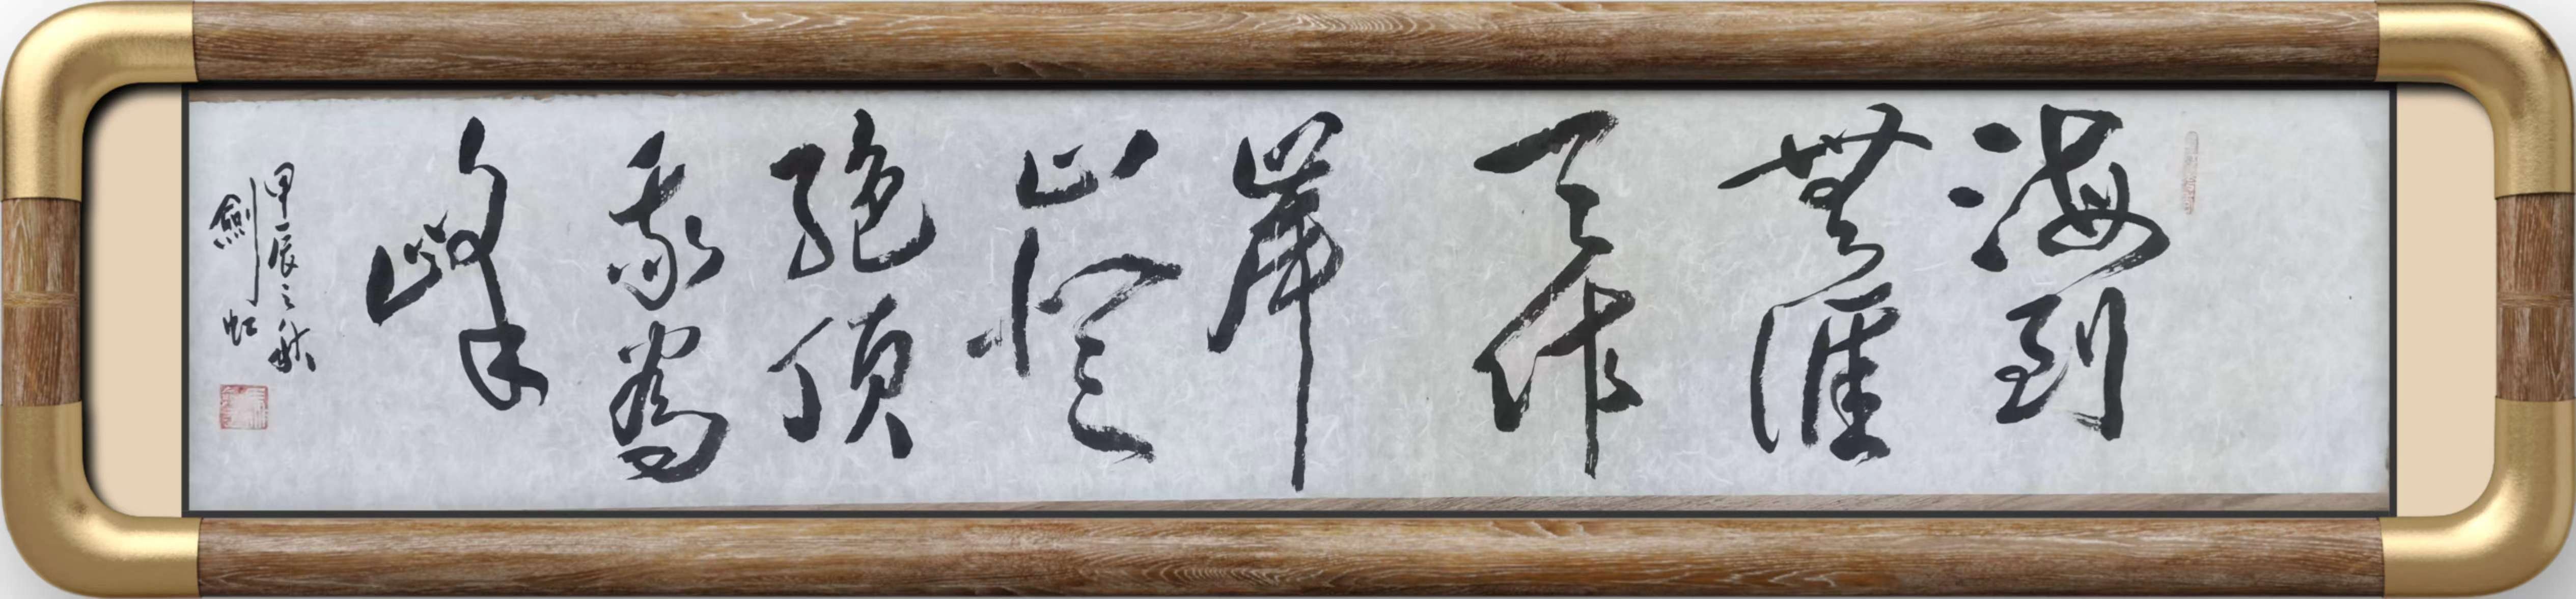 海到
無涯
天作
岸
山登
絕頂
我為
峰
甲辰之秋
劍虹